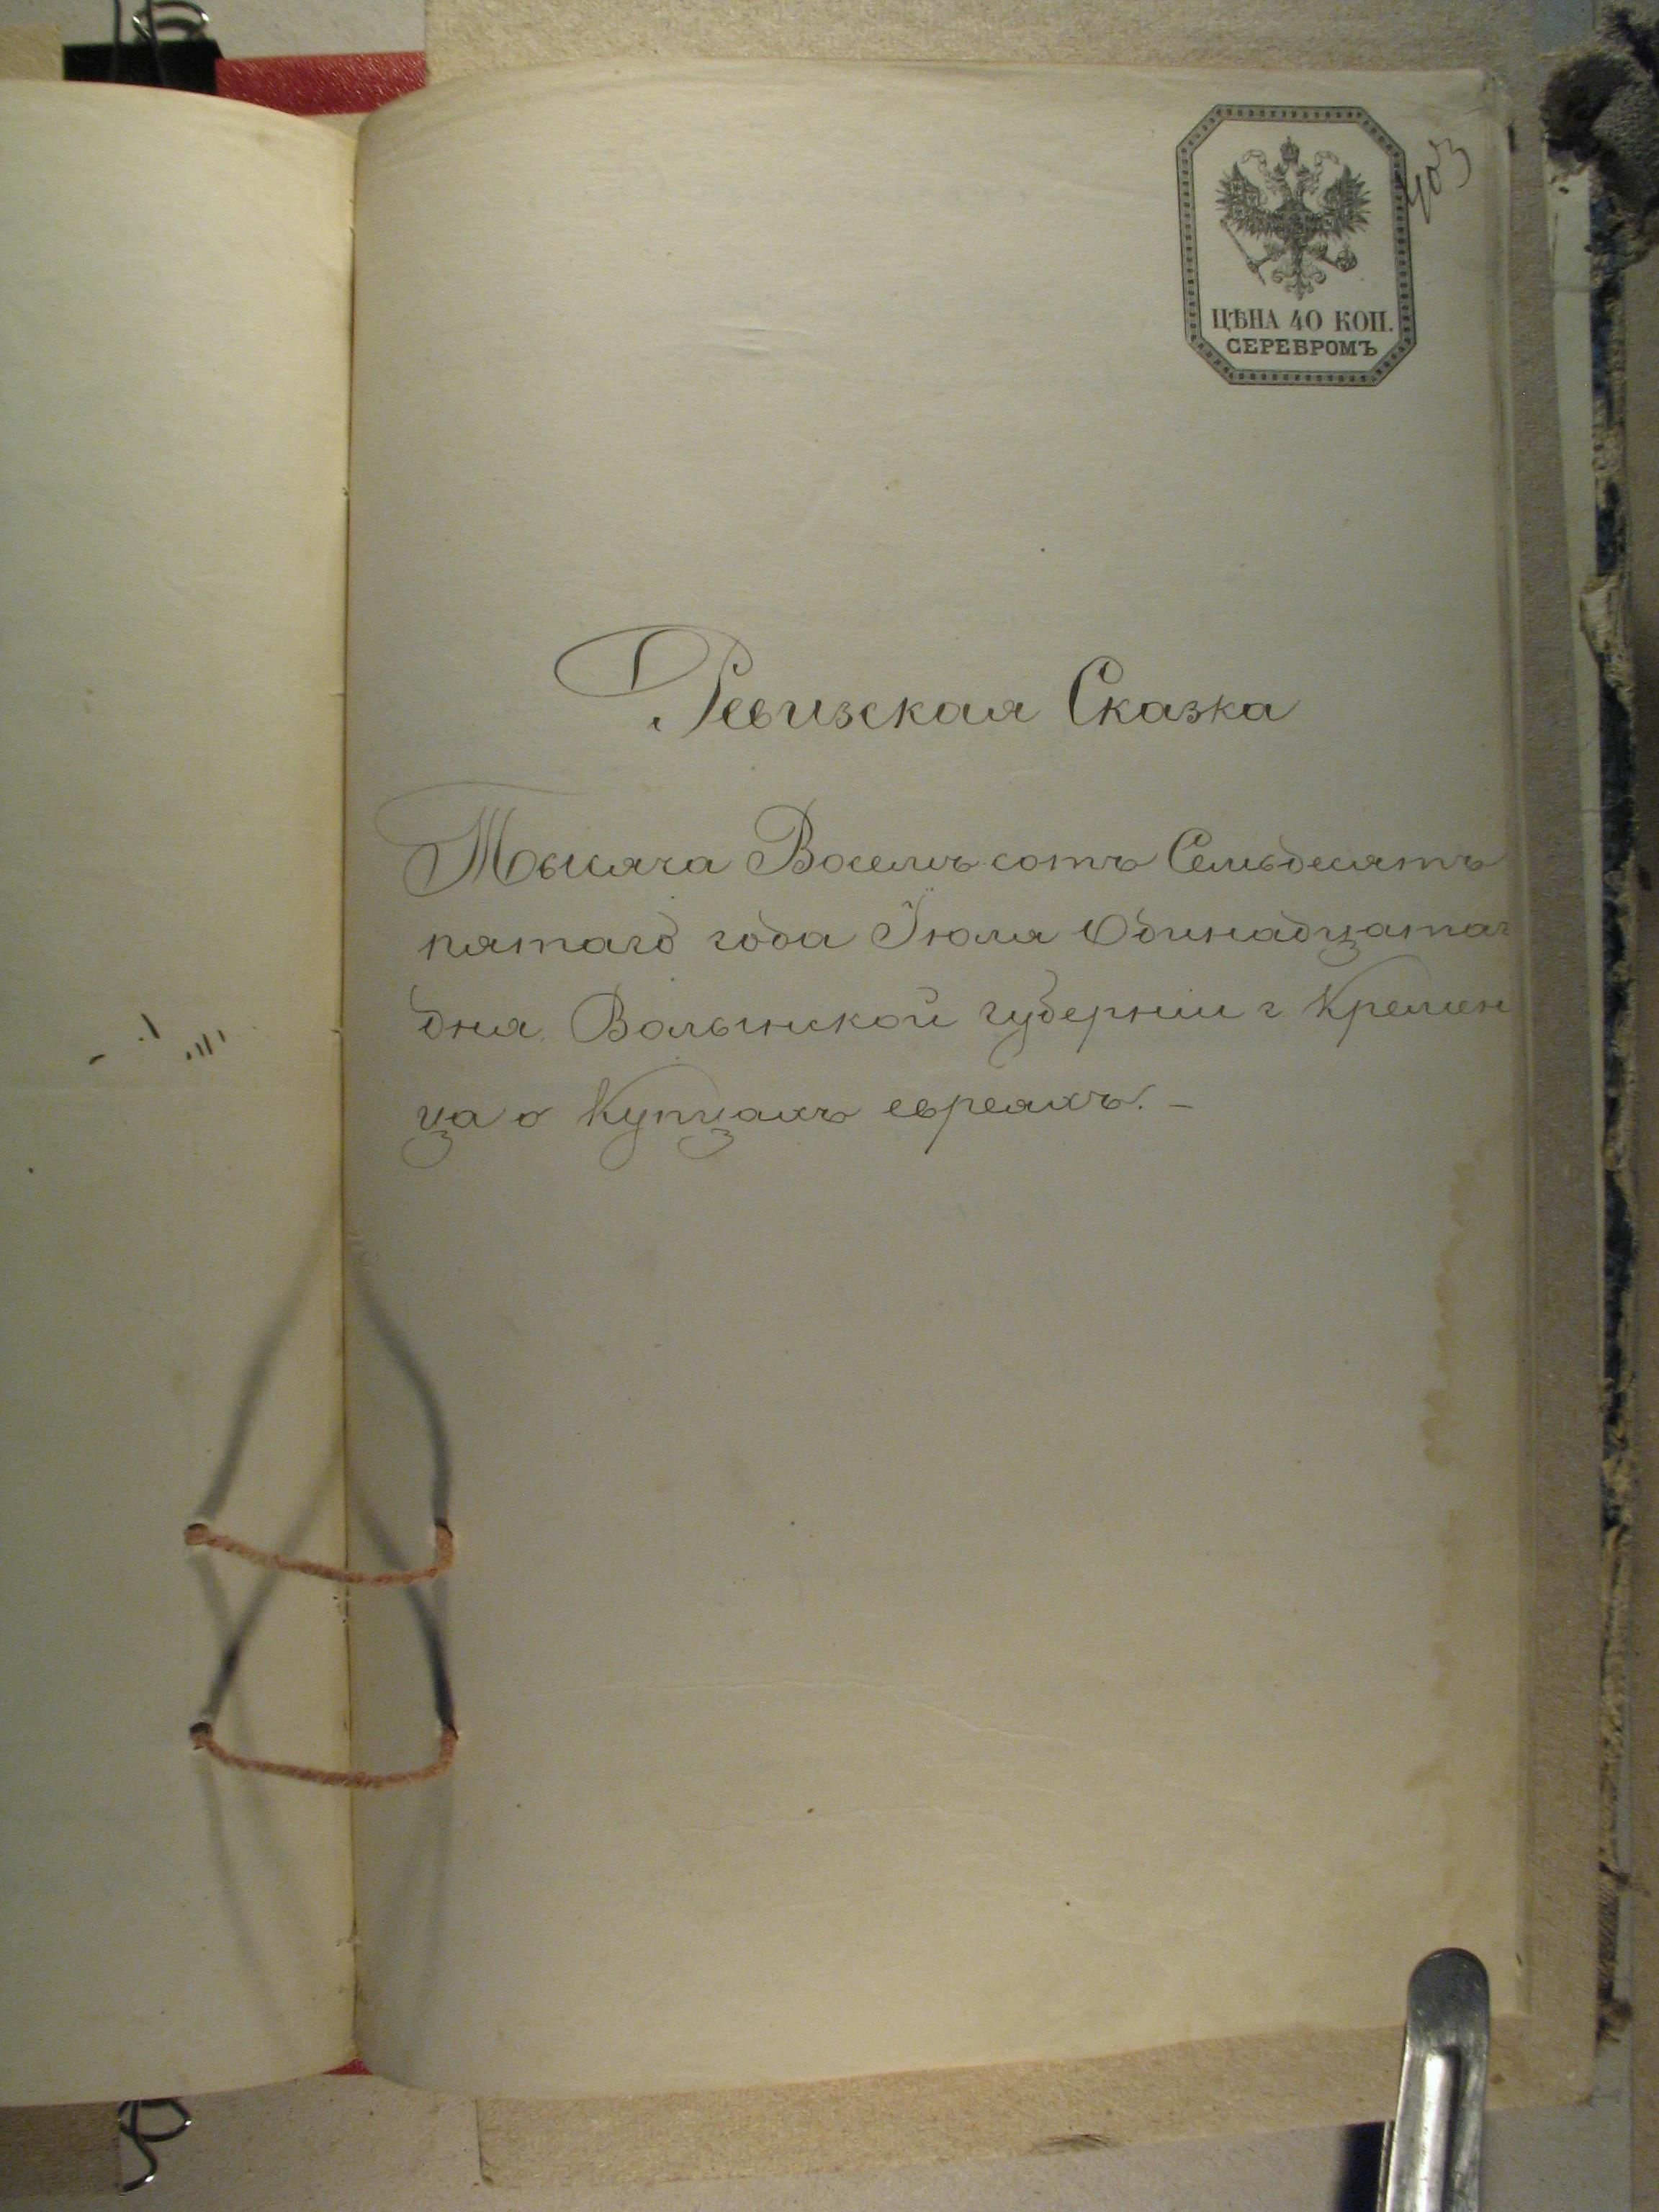 403
ЦѢНА 40 КОП.
СЕРЕБРОМЪ
Ревизская Сказка
Тысяча Восемь сотъ Семьдесятъ
пятаго года Іюля Одинадцатаг
дня Волынской губерніи г Кремен
ца о купцахъ евреяхъ. –